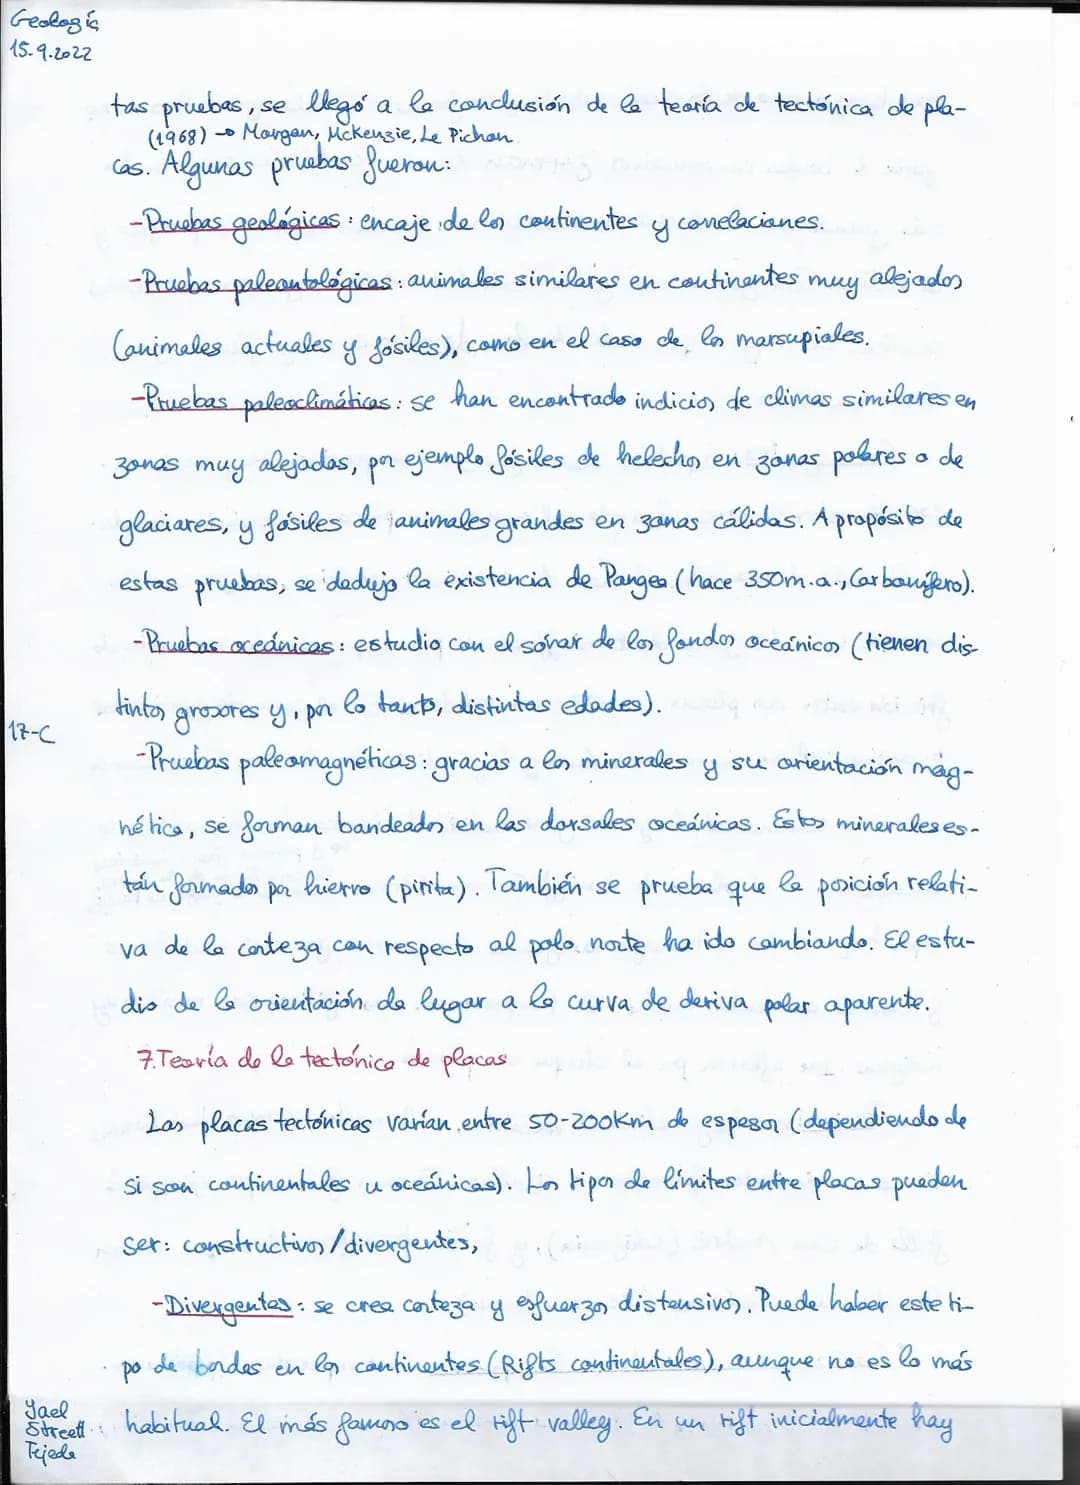 Geología
15.9.2022
tas pruebas, se llegó a la conclusión de la teoría de tectónica de pla-
(1968) → Morgan, McKenzie, Le Pichon
cas. Algunas pruebas fueron:
-Pruebas geológicas: encaje de los continentes y correlaciones.
-Pruebas paleontológicas: animales similares en continentes muy alejados
(animales actuales y fósiles), como en el caso de los marsupiales.
-Pruebas paleoclimáticas: se han encontrado indicios de climas similares en
zonas muy alejadas, por ejemplo fósiles de helechos en zonas polares o de
glaciares, y fósiles de animales grandes en zonas cálidas. A propósito de
estas pruebas, se dedujo la existencia de Pangea (hace 350m.a., Carbonífero).
-Pruebas oceánicas: estudio con el sónar de los fondos oceánicos (tienen dis-
tintos grosores y, por lo tanto, distintas edades).
17-C
-Pruebas paleomagnéticas: gracias a los minerales y su orientación mag-
nética, se forman bandeados en las dorsales oceánicas. Estos minerales es-
tán formados por hierro (pirita). También se prueba que la posición relati-
va de la corteza con respecto al polo norte ha ido cambiando. El estu-
dio de la orientación da lugar a la curva de deriva polar aparente.
7.Teoría de la tectónica de placas
Las placas tectónicas varían entre 50-200Km de espesor (dependiendo de
si son continentales u oceánicas). Los tipos de límites entre placas pueden
ser: constructivos/divergentes,
-Divergentes: se crea corteza y esfuerzos distensivos. Puede haber este ti-
po de bordes en los continentes (Rifts continentales), aunque no es lo más
habitual. El más famoso es el rift valley. En un rift inicialmente hay
Yael
Streett
Tejeda